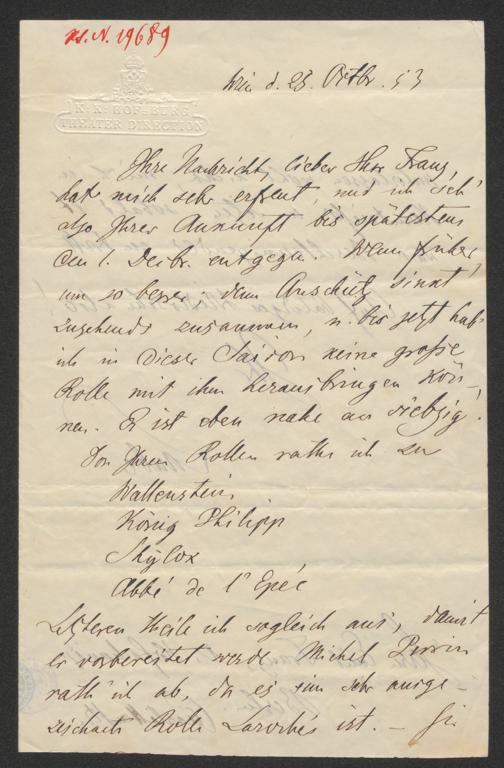 H.N. 19689
K. K. HOF-BURG
THEATER DIRECTION
Wien d. 23. Octbr. 53
Ihre Nachricht, lieber Herr Franz,
hat mich sehr erfreut, und ich seh'
also Ihrer Ankunft bis spätestens
den 1. Decbr. entgegen. Wenn früher,
um so besser: denn Anschütz sinkt
zusehends zusammen, u. bis jetzt hab'
ich in dieser Saison keine große
Rolle mit ihm herausbringen kön-
nen. Er ist eben nahe an siebzig!
Von Ihren Rollen rathe ich zu
Wallenstein
König Philipp
Shylox
Abbé de l'Epée
Letzteren theile ich sogleich aus, damit
er vorbereitet werde. Michel Perrin
rath' ich ab, da es eine sehr ausge-
zeichnete Rolle Laroche's ist. — Sie